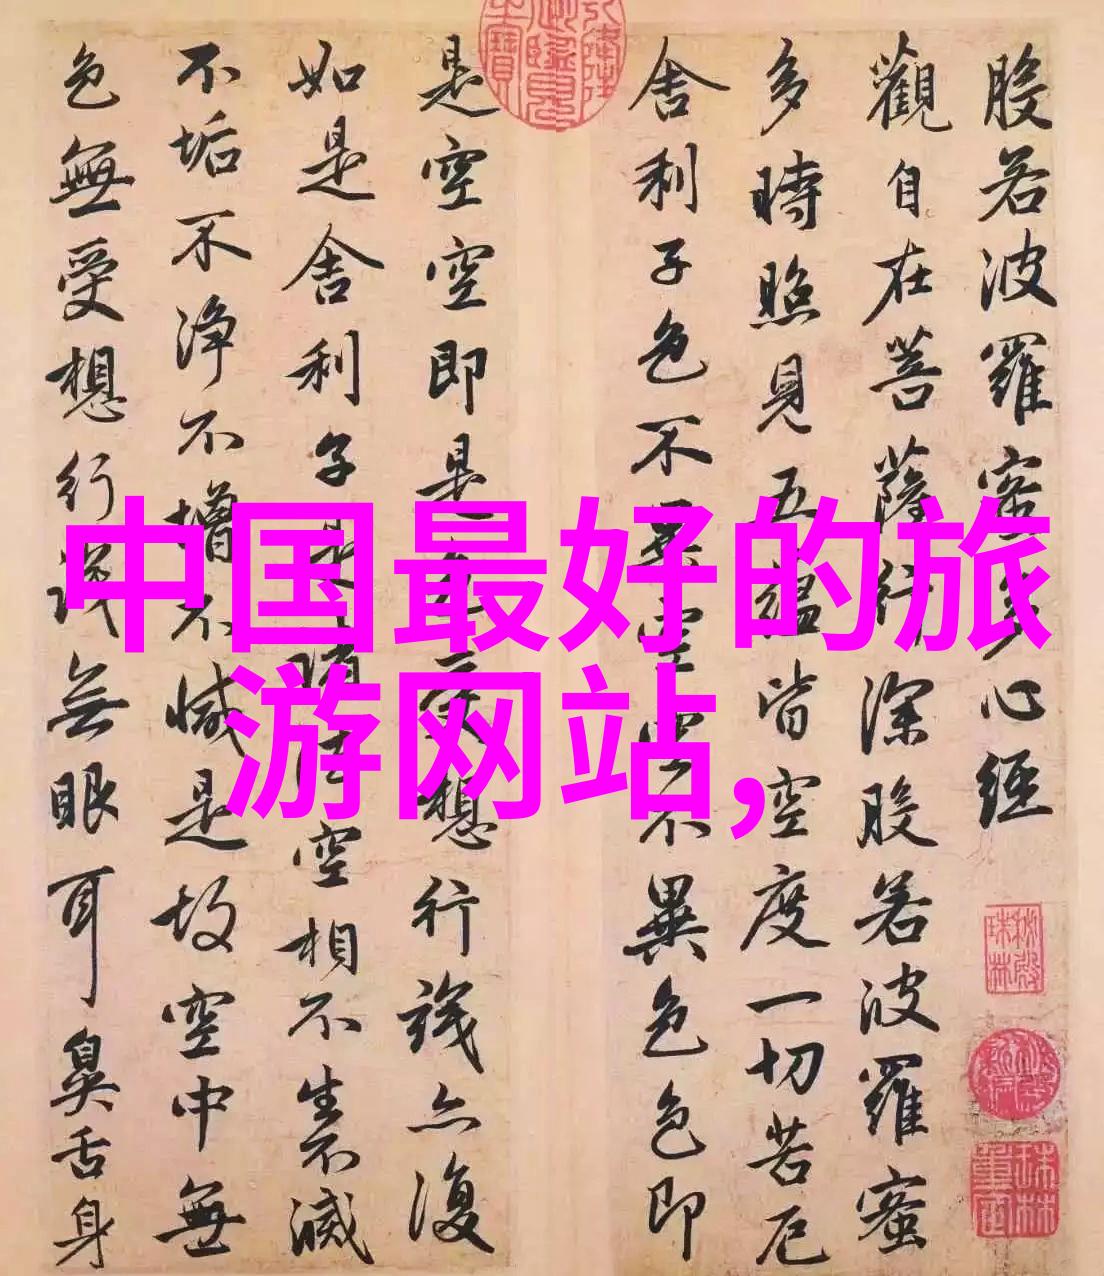 般若波羅蜜多心經
觀自在菩薩行深般若波羅蜜
多時照見五蘊皆空度一切苦厄
舍利子色不異空空不異色色即
是空空即是色受想行識亦復
如是舍利子是諸法空相不生不滅
不垢不淨不增不減是故空中無
色無受想行識無眼耳鼻舌身
中国最好的旅
游网站,